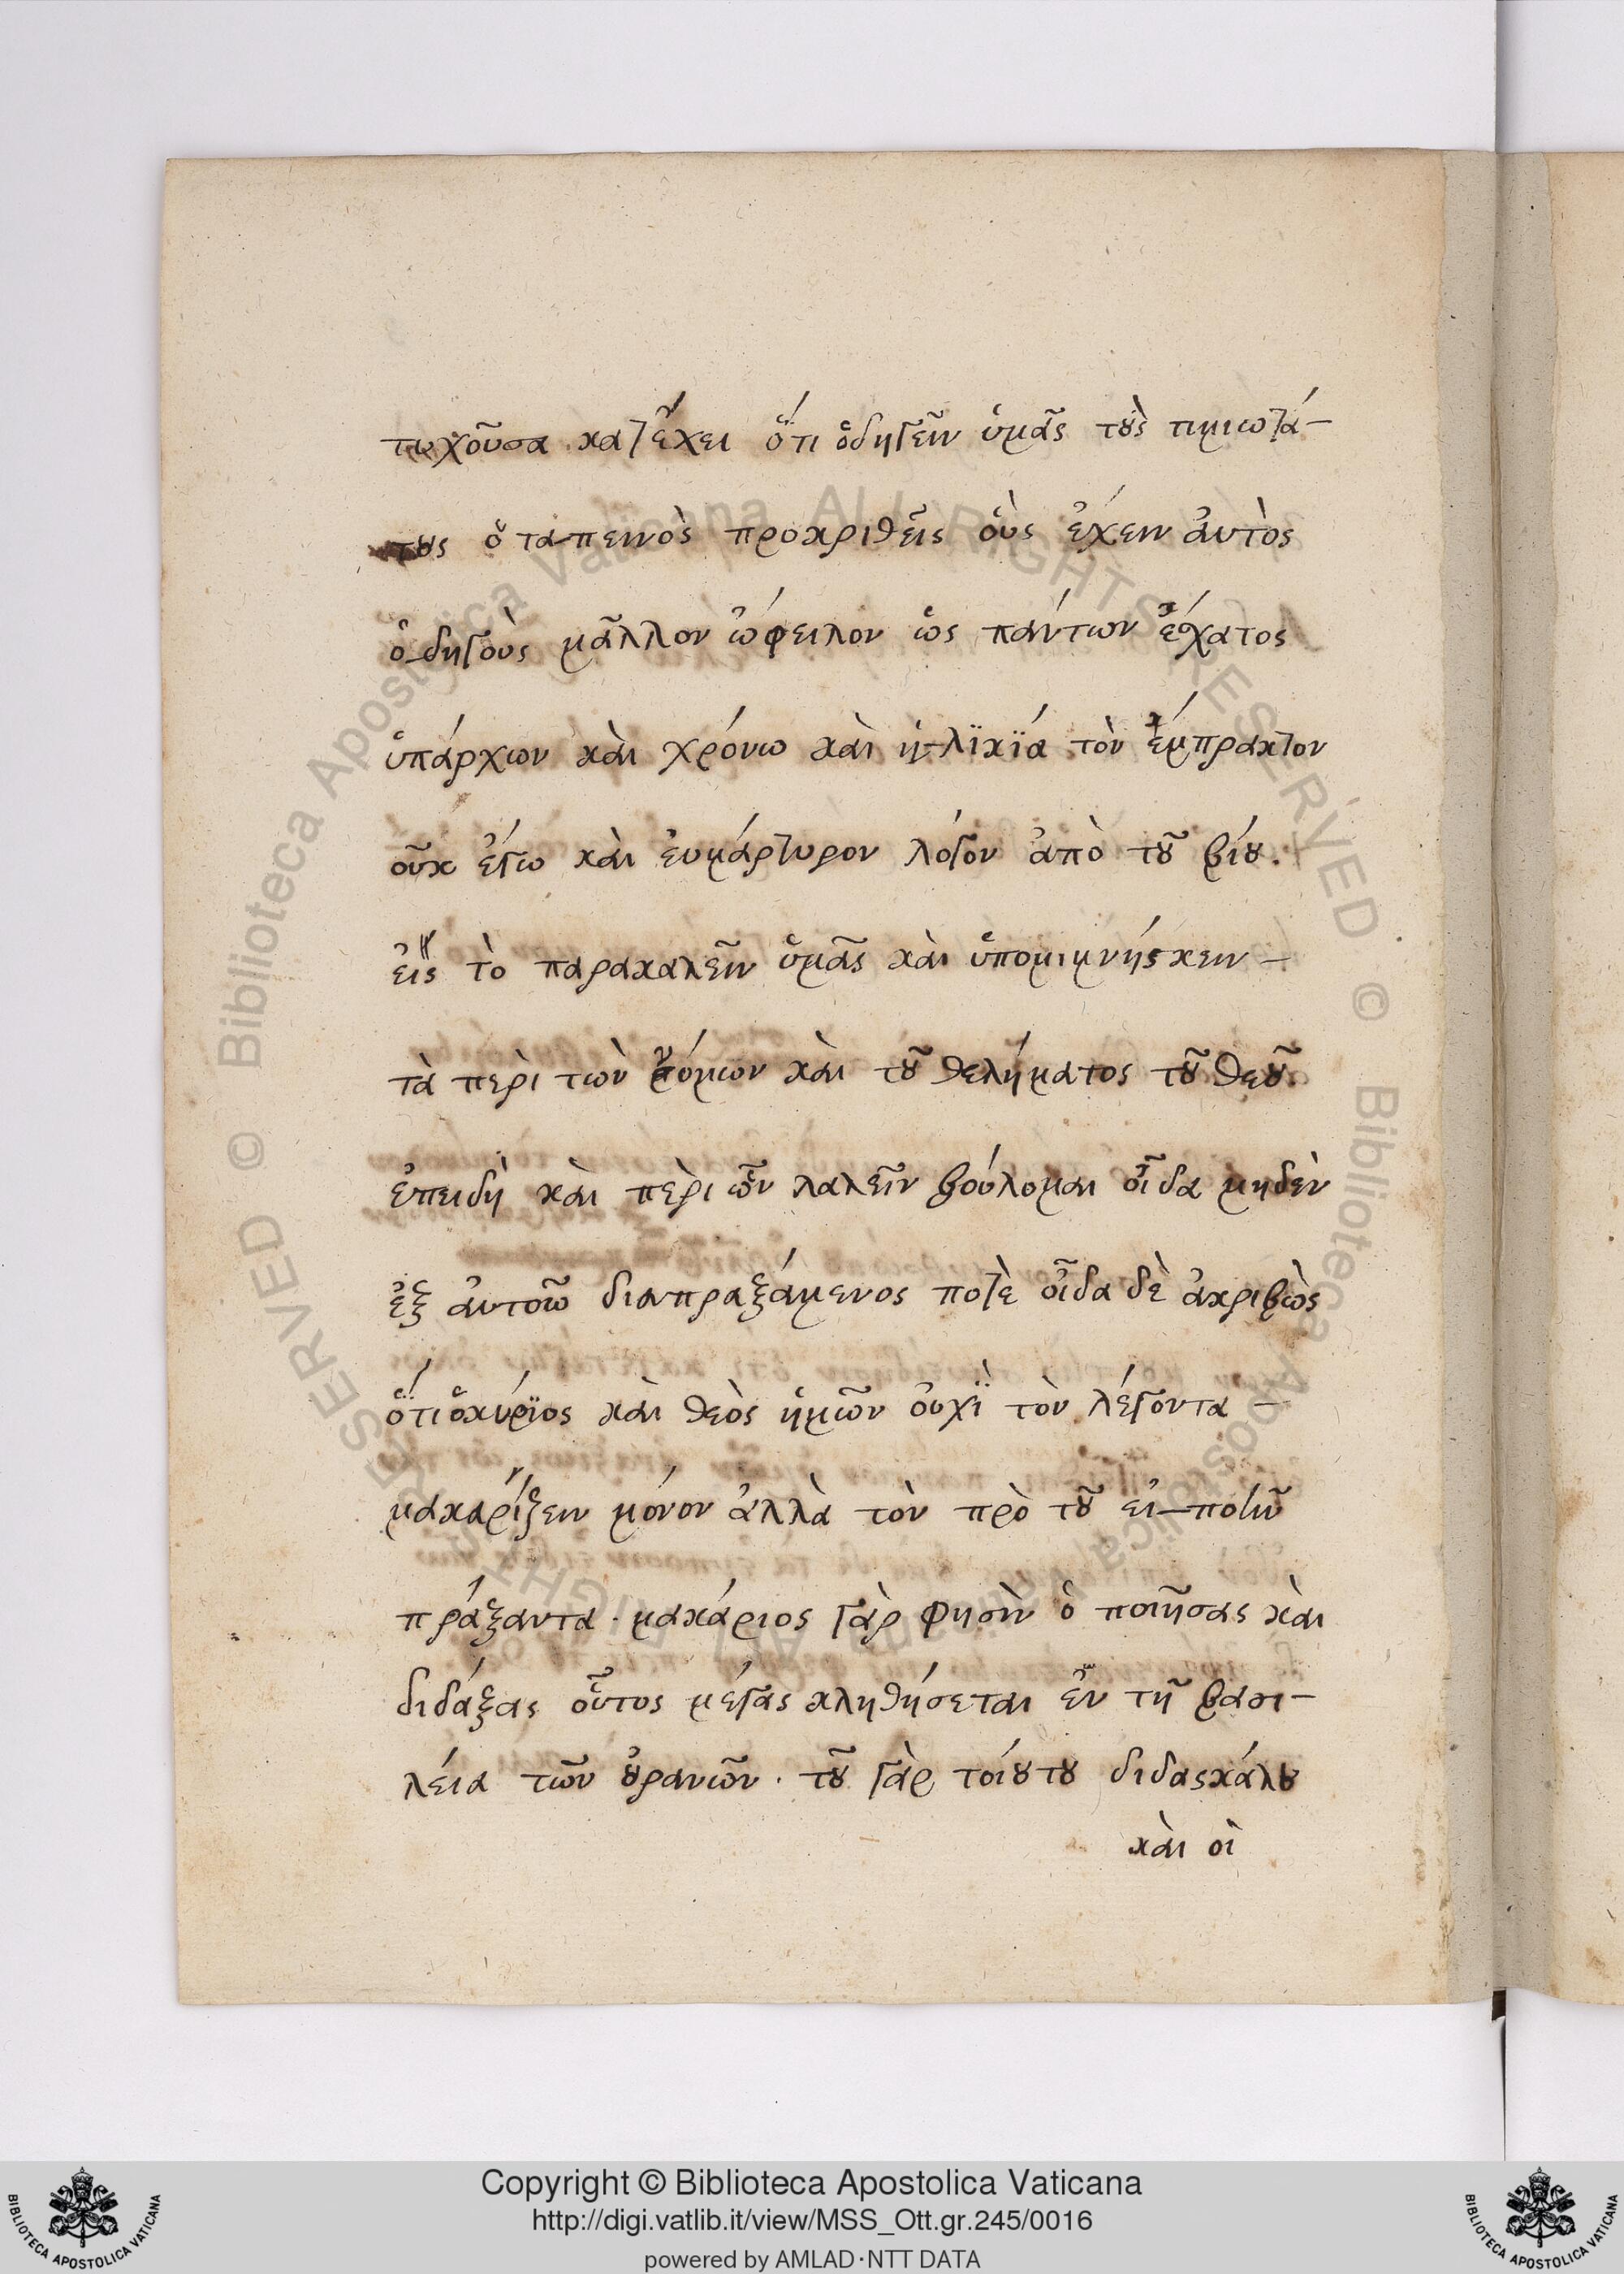 τυχοῦσα κατἔχει ὅτι ὁδηγεῖν ὑμᾶς τοὺς τιμιωτά-
τους ὁ ταπεινὸς προκριθεῖς οὓς ἔχειν ἀυτὸς
ὁδηγοὺς μᾶλλον ὤφειλον ὡς πάντων ἔχατος
ὑπάρχων κὰι χρόνω κὰι ἡλϊκϊά τὸν ἔμπρακτον
οὖκ ἔγω κὰι ἐυμάρτυρον λόγον ἀπὸ τοῦ βίου.
εἰς τὸ παρακαλεῖν ὑμᾶς κὰι ὑπομιμνήσκειν -
τὰ περὶ τῶν νόμων κὰι τοῦ θελήματος τοῦ θεοῦ.
ἐπειδὴ κὰι περὶ ὧν λαλεῖν βούλομαι οἶδα μηδὲν
ἐξ ἀυτῶν διαπραξάμενος ποτὲ οἶδα δὲ ἀκριβὼς
ὅτι ὁ κύρϊος κὰι θεὸς ἡμῶν ὀυχϊ τὸν λέγοντα -
μακαρίζειν μόνον ἀλλὰ τὸν πρὸ τοῦ εἰ-ποῖν
πράξαντα · μακάριος γὰρ φησὶν ὁ ποιῆσας κὰι
διδάξας οὗτος μέγας κληθήσεται ἐν τῆ βασι-
λέια τῶν οὐρανῶν · τοῦ γὰρ τοίουτου διδασκάλου
κὰι οἱ
Copyright © Biblioteca Apostolica Vaticana
http://digi.vatlib.it/view/MSS_Ott.gr.245/0016
powered by AMLAD·NTT DATA
BIBLIOTECA APOSTOLICA VATICANA
BIBLIOTECA APOSTOLICA VATICANA